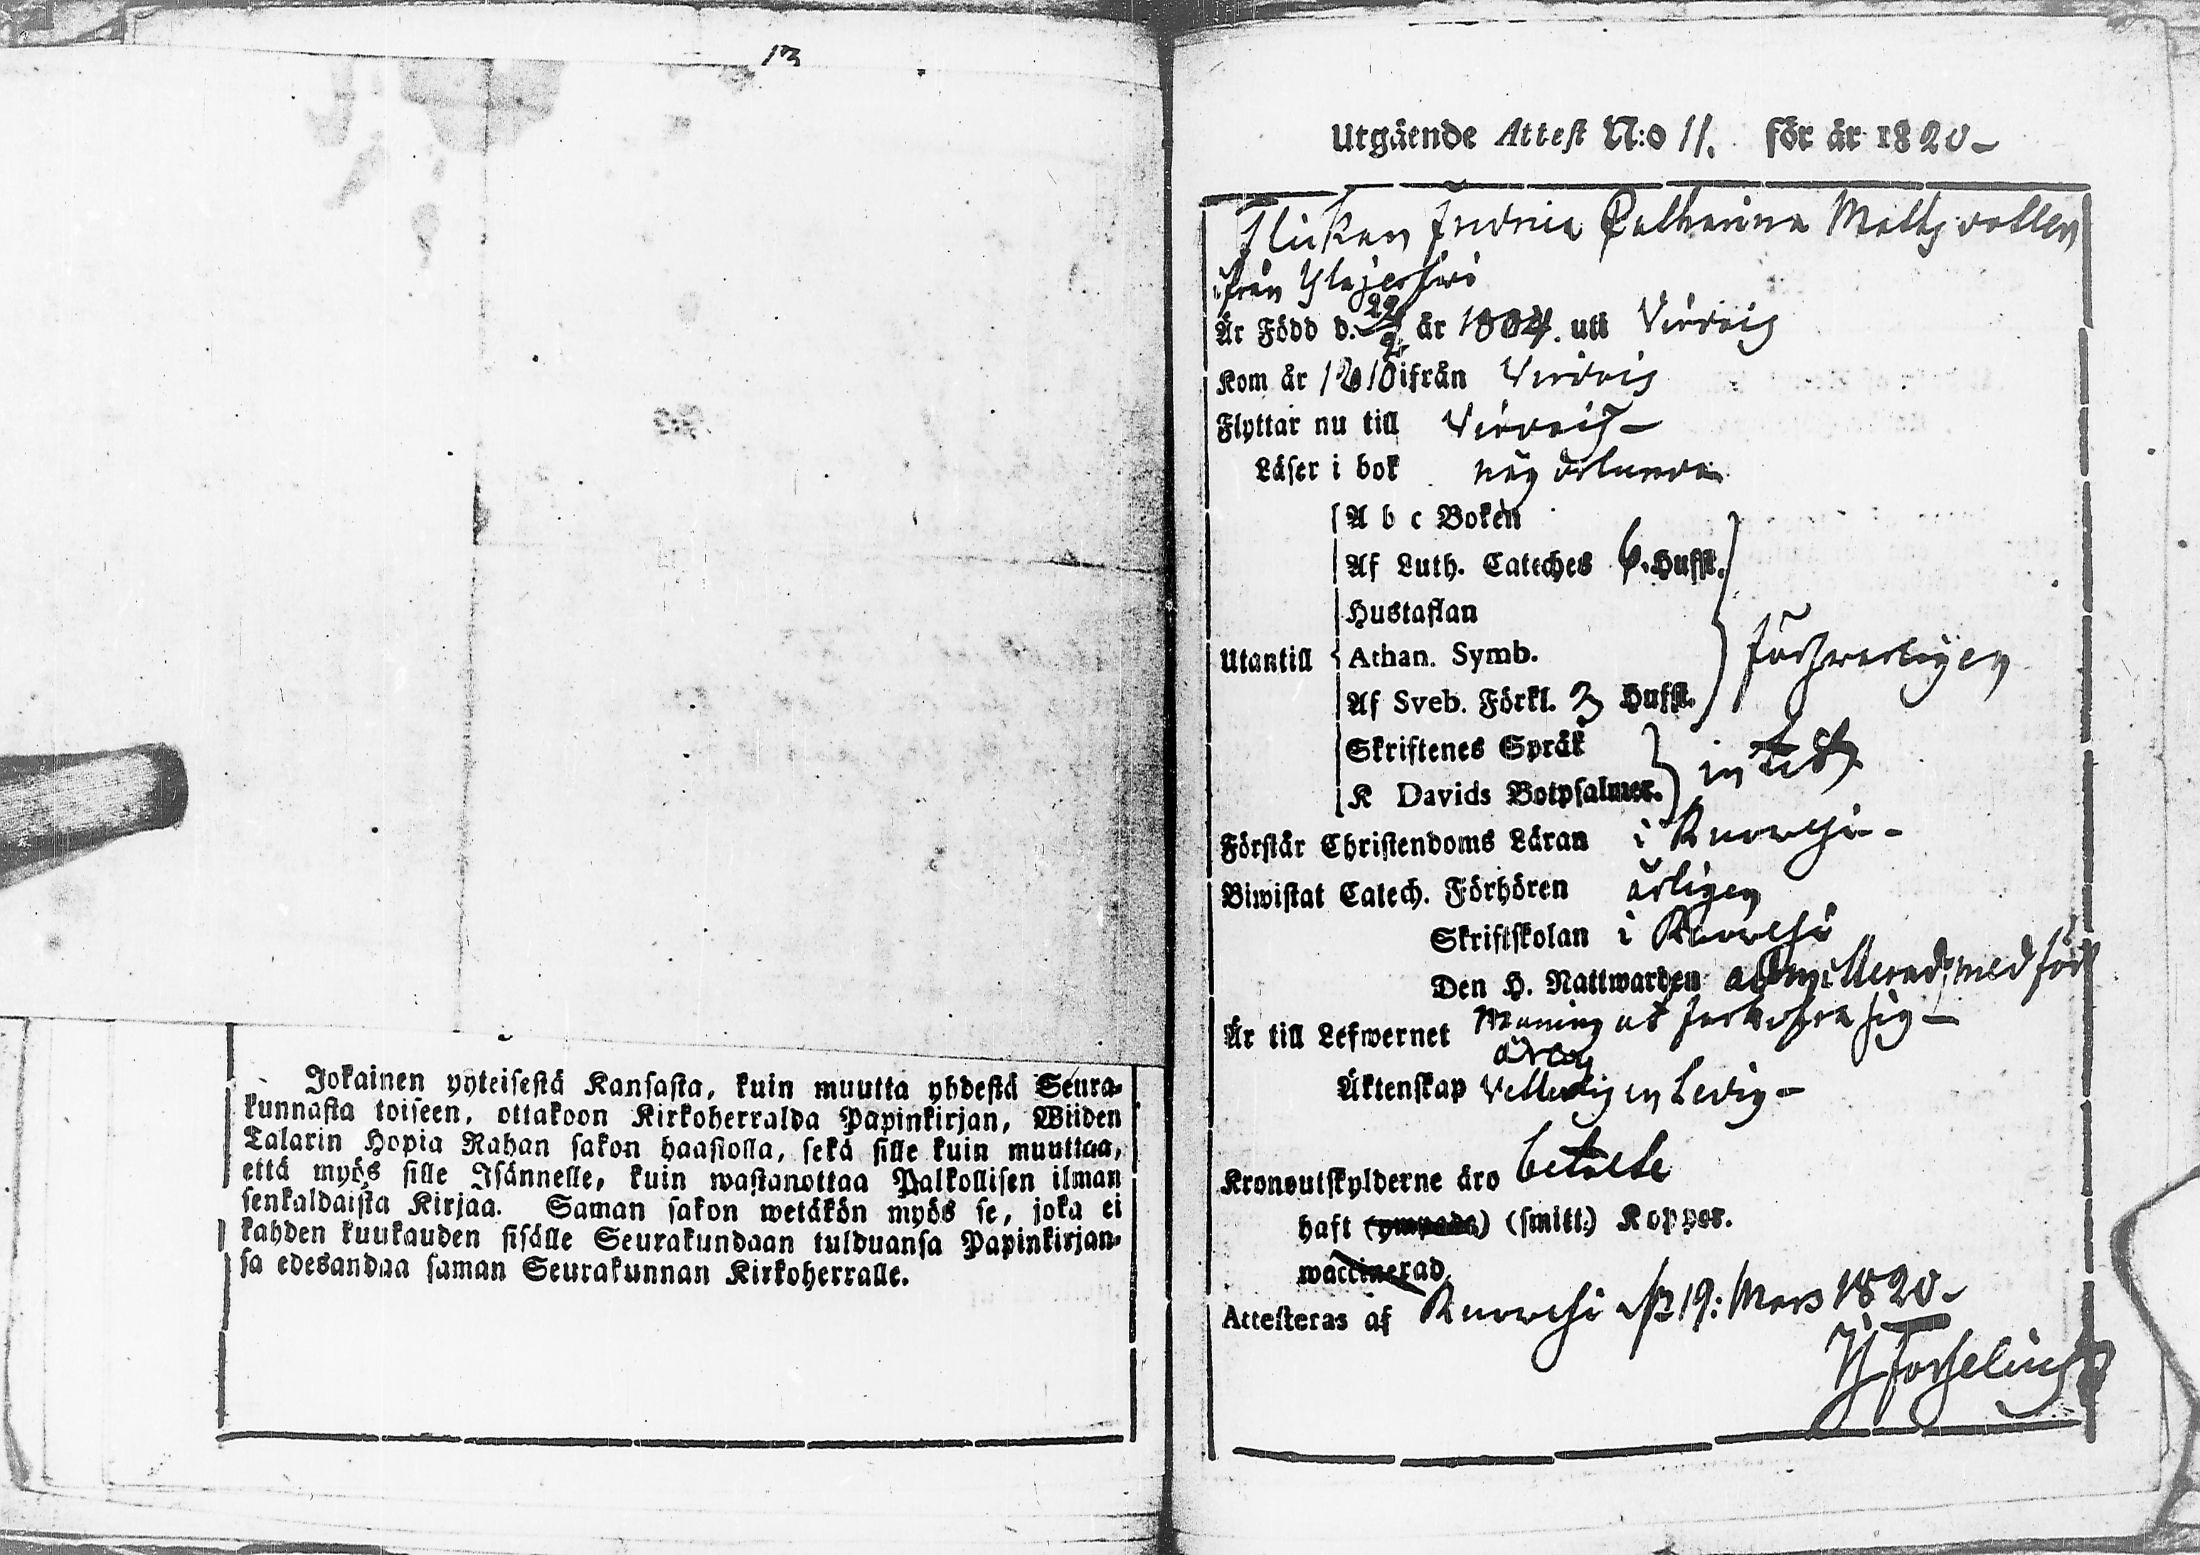 13
Jokainen yyteisestä Kansasta, kuin muutta yhdestä Seura-
kunnasta toiseen, ottakoon Kirkoherralda Papinkirjan, Wiiden
Talarin Hopia Rahan sakon haastolla, sekä sille kuin muuttaa,
että myös sille Isännelle, kuin wastanottaa Palkollisen ilman
senkaldaista Kirjaa. Saman sakon wetäkön myös se, joka ei
kahden kuukauden sisälle Seurakundaan tulduansa Papinkirjan-
sa edesandaa saman Seurakunnan Kirkoherralle.
Utgående Attest N:o 11. för år 1820-
flickan Catharina Matts dotter
från
Är Född d. 29/2 år 1804. uti Virdois
Kom år 1810 ifrån Virdois
Flyttar nu till Virdois-
Läser i bok någorlunda
A b c Boken
Af Luth. Cateches 6. Hufst.
Hustaflan
Utantill Athan. Symb. försvarligen
Af Sveb. Förkl. 3 Hufst.
Skriftenes Språk
K Davids Botpsalmer. intet
Förstår Christendoms Läran i Kuorehi-
Biwistat Catech. Förhören årligen
Skriftskolan i Kuorehi
Den H. Nattwarden admitterad, med för
Är till Lefwernet maning at förkofra sig-
ärlig
Äktenskap ledig-
Kronoutskylderne äro betalte
haft (ympade) (smitt:) Koppor.
waccinerad
Attesteras af Kuorehi d. 19: Mars 1820-